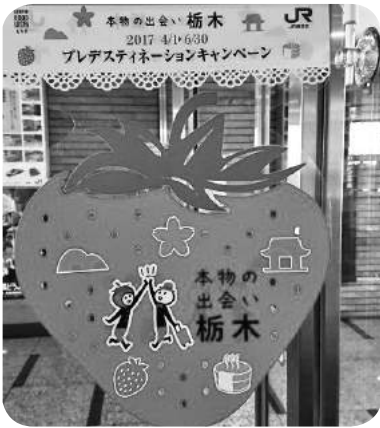 本物の出会い 栃木
JR
2017 4/1▶6/30
プレデスティネーションキャンペーン
本物の
出会い
栃木